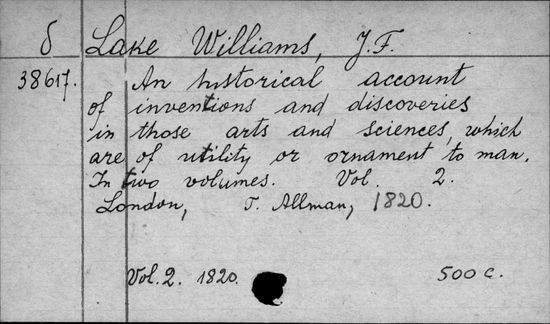 δ Lake Williams, J.F.
38617. An historical account
of inventions and discoveries
in those arts and sciences, which
are of utility or ornament to man.
In two volumes. Vol. 2.
London, T. Allman, 1820.
Vol. 2. 1820. 500 c.